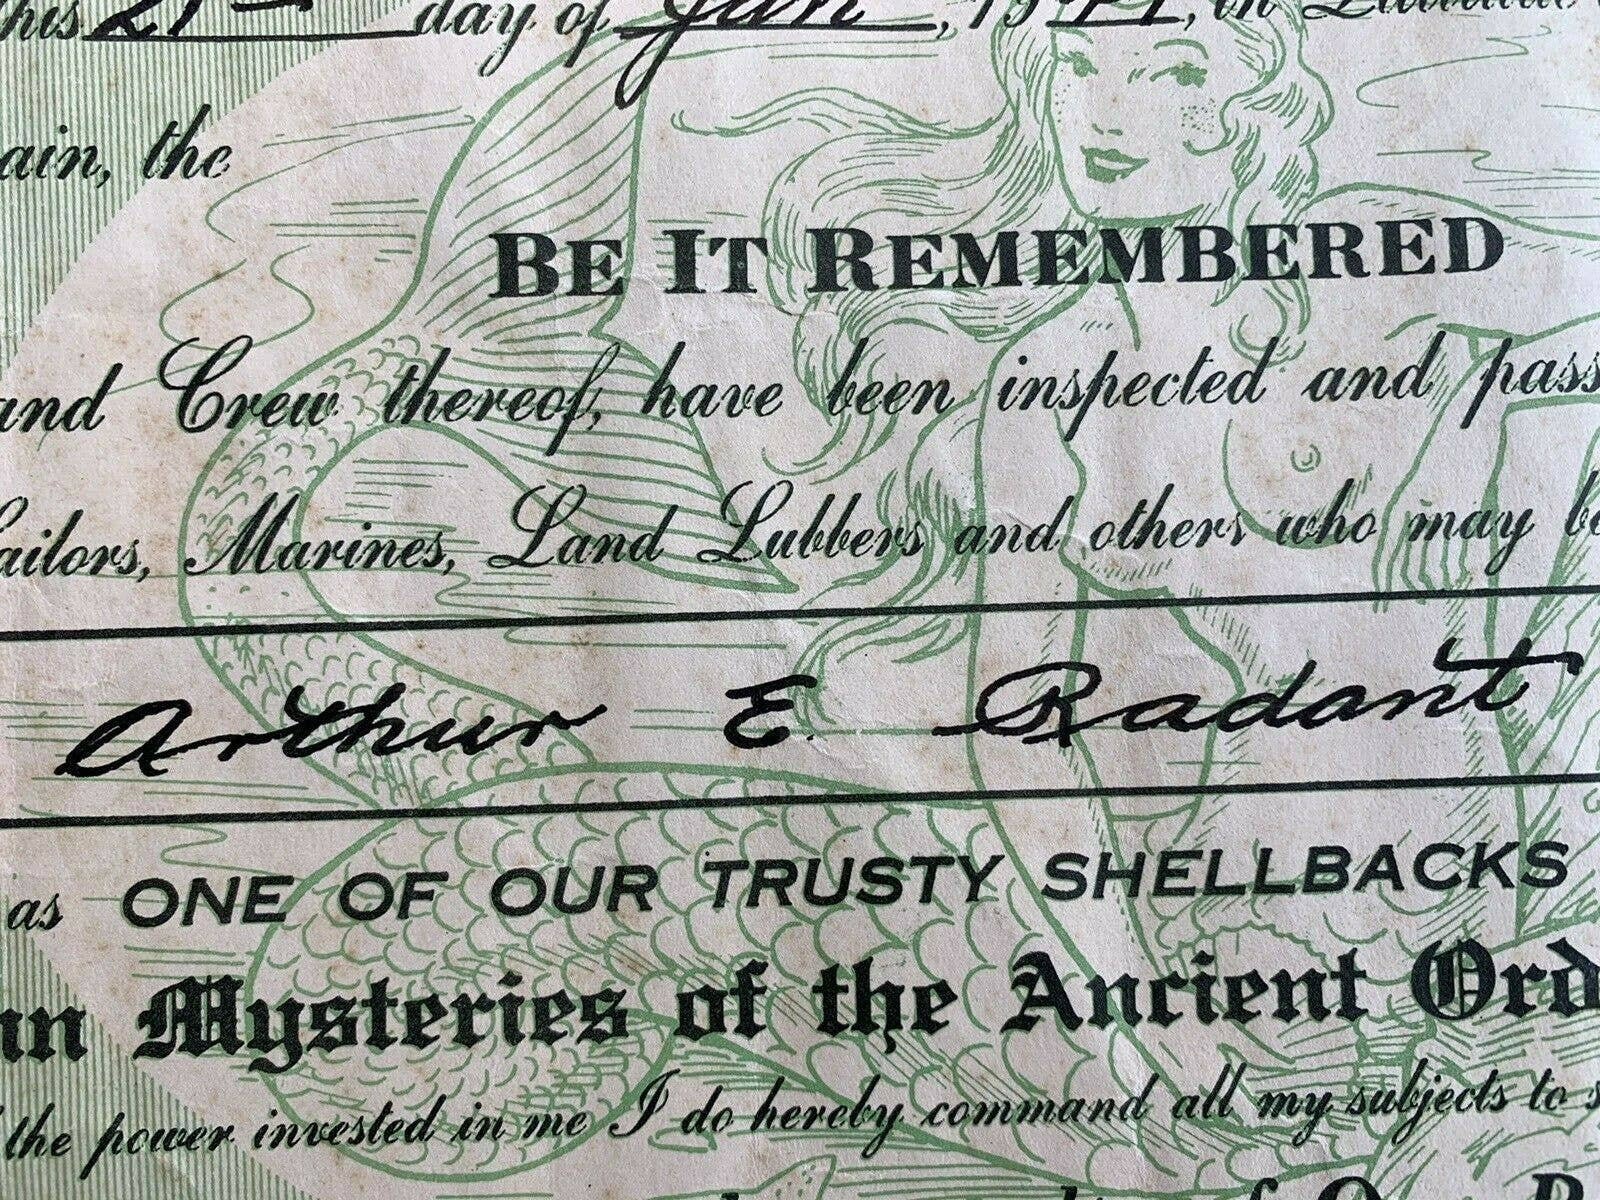 this 21st day of Jan, 19 in
ain, the
BE IT REMEMBERED
and Crew thereof, have been inspected and pass
ailors, Marines, Land Lubbers and others who may be
Arthur E. Radant
as ONE OF OUR TRUSTY SHELLBACKS
Mysteries of the Ancient Ord
the power invested in me I do hereby command all my subjects to s